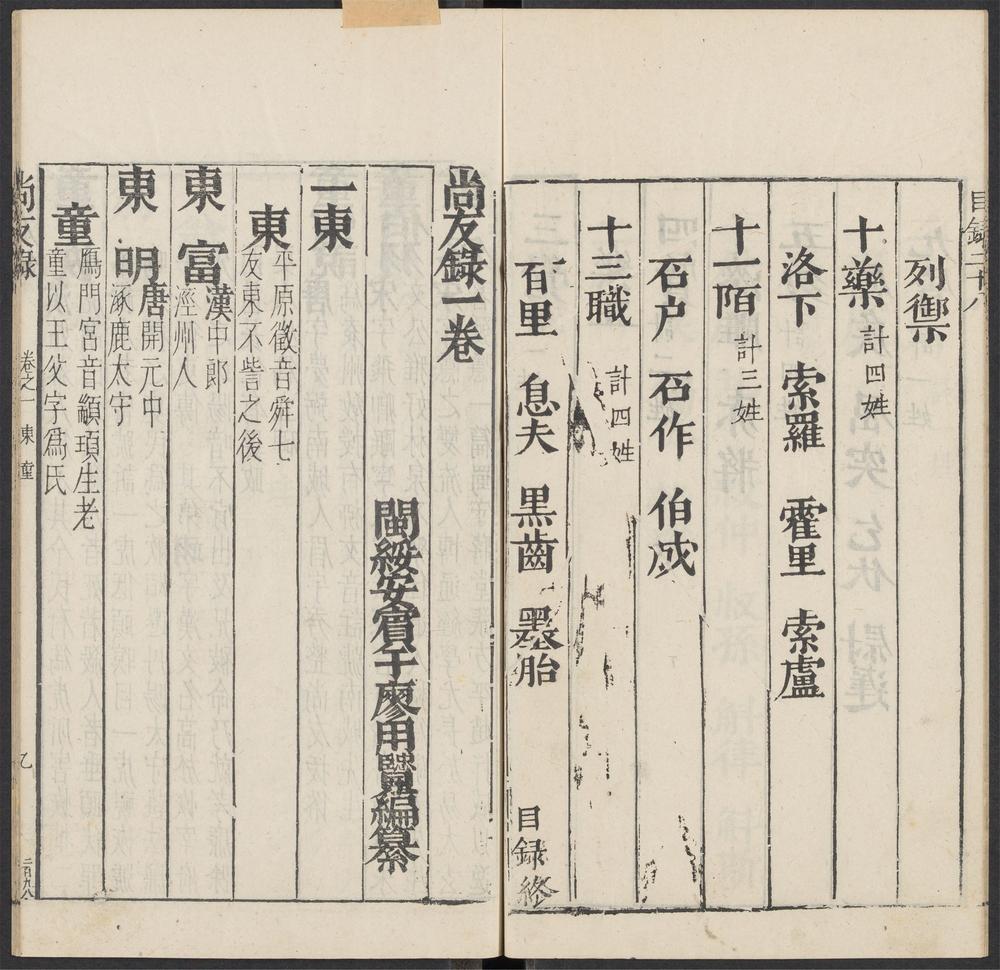 目錄二十八
列禦
十藥 計四姓
洛下 索羅 霍里 索盧
十一陌 計三姓
石户 石作 伯成
十三職 計四姓
百里 息夫 黑齒 墨胎
目録終
尚友錄一卷
閩綏安賓于廖用賢編纂
一東
東 平原徵音舜七
友東不訾之後
東富 漢中郎
涇州人
東明 唐開元中
涿鹿太守
童 鴈門宮音顓頊生老
童以王父字爲氏
尚友錄 卷之一 東 童